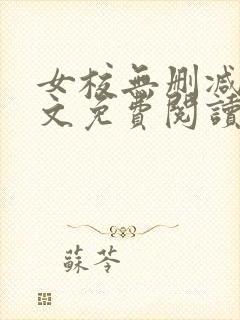 女校無刪減
文免費閱讀
蘇苓